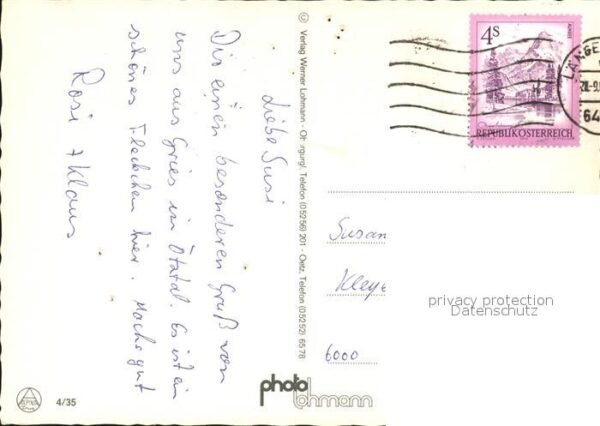 Liebe Susi
Dir einen besonderen Gruß von
uns aus Gries im Ötztal. Es ist ein
schönes Fleckchen hier. Mach's gut
Rosi + Klaus
4/35
© Verlag Werner Lohmann - Obergurgl, Telefon (05256) 201 - Oetz, Telefon (05252) 6578
photo
lohmann
4S
REPUBLIK ÖSTERREICH
LÄNGE
64
Susan
Kleye
6000
privacy protection
Datenschutz